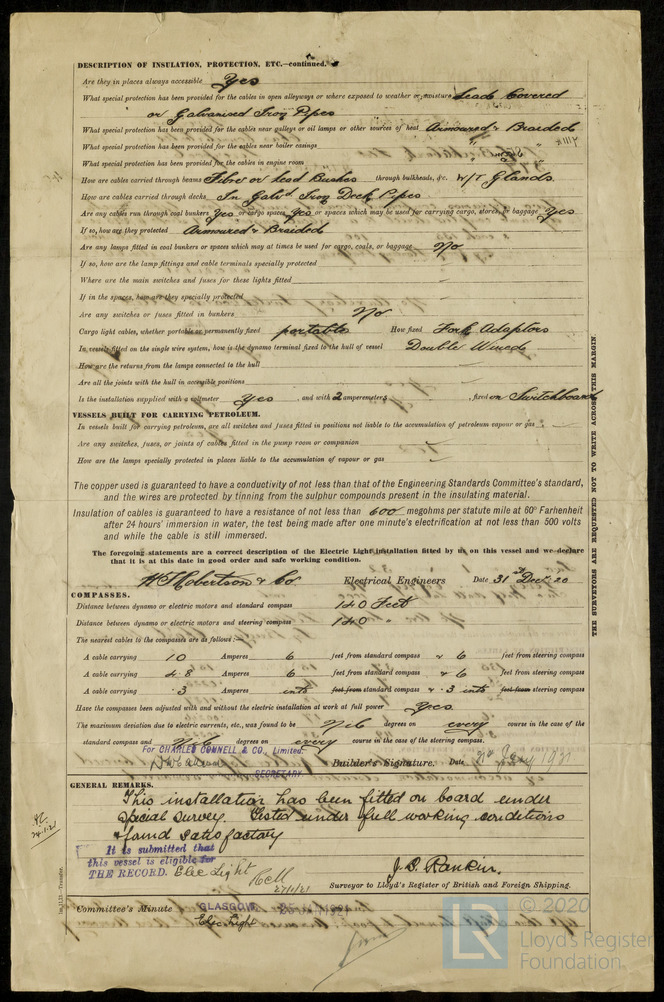 DESCRIPTION OF INSULATION, PROTECTION, ETC.—continued.
Are they in places always accessible Yes
What special protection has been provided for the cables in open alleyways or where exposed to weather or moisture Lead Covered
or Galvanised Iron Pipes
What special protection has been provided for the cables near galleys or oil lamps or other sources of heat Armoured & Braided
What special protection has been provided for the cables near boiler casings " "
What special protection has been provided for the cables in engine room " "
How are cables carried through beams Fibre or Lead Bushes through bulkheads, &c. W/T Glands.
How are cables carried through decks In Galvd Iron Deck Pipes
Are any cables run through coal bunkers Yes or cargo spaces Yes or spaces which may be used for carrying cargo, stores, or baggage Yes
If so, how are they protected Armoured & Braided
Are any lamps fitted in coal bunkers or spaces which may at times be used for cargo, coals, or baggage No
If so, how are the lamp fittings and cable terminals specially protected
Where are the main switches and fuses for these lights fitted
If in the spaces, how are they specially protected
Are any switches or fuses fitted in bunkers No
Cargo light cables, whether portable or permanently fixed portable How fixed Fork Adaptors
In vessels fitted on the single wire system, how is the dynamo terminal fixed to the hull of vessel Double Wired
How are the returns from the lamps connected to the hull
Are all the joints with the hull in accessible positions
Is the installation supplied with a voltmeter Yes , and with 2 amperemeters , fixed on Switchboard
VESSELS BUILT FOR CARRYING PETROLEUM.
In vessels built for carrying petroleum, are all switches and fuses fitted in positions not liable to the accumulation of petroleum vapour or gas
Are any switches, fuses, or joints of cables fitted in the pump room or companion
How are the lamps specially protected in places liable to the accumulation of vapour or gas
The copper used is guaranteed to have a conductivity of not less than that of the Engineering Standards Committee's standard,
and the wires are protected by tinning from the sulphur compounds present in the insulating material.
Insulation of cables is guaranteed to have a resistance of not less than 600 megohms per statute mile at 60° Farhenheit
after 24 hours' immersion in water, the test being made after one minute's electrification at not less than 500 volts
and while the cable is still immersed.
The foregoing statements are a correct description of the Electric Light installation fitted by us on this vessel and we declare
that it is at this date in good order and safe working condition.
Robertson & Co Electrical Engineers Date 31st Decr 20
COMPASSES.
Distance between dynamo or electric motors and standard compass 140 Feet
Distance between dynamo or electric motors and steering compass 140 "
The nearest cables to the compasses are as follows:—
A cable carrying 10 Amperes 6 feet from standard compass & 6 feet from steering compass
A cable carrying 4.8 Amperes 6 feet from standard compass & 6 feet from steering compass
A cable carrying .3 Amperes into feet from standard compass & .3 into feet from steering compass
Have the compasses been adjusted with and without the electric installation at work at full power Yes
The maximum deviation due to electric currents, etc., was found to be Nil degrees on every course in the case of the
standard compass and Nil degrees on every course in the case of the steering compass.
For CHARLES CONNELL & CO. Limited.
SECRETARY
Builder's Signature. Date 1921
GENERAL REMARKS.
This installation has been fitted on board under
Special Survey. Tested under full working conditions
& found satisfactory
It is submitted that
this vessel is eligible for
THE RECORD. Elec Light
27/1/21
J. B. Rankin.
Surveyor to Lloyd's Register of British and Foreign Shipping.
Committee's Minute GLASGOW
Elec Light
THE SURVEYORS ARE REQUESTED NOT TO WRITE ACROSS THIS MARGIN.
© 2020
LR
Lloyd's Register
Foundation